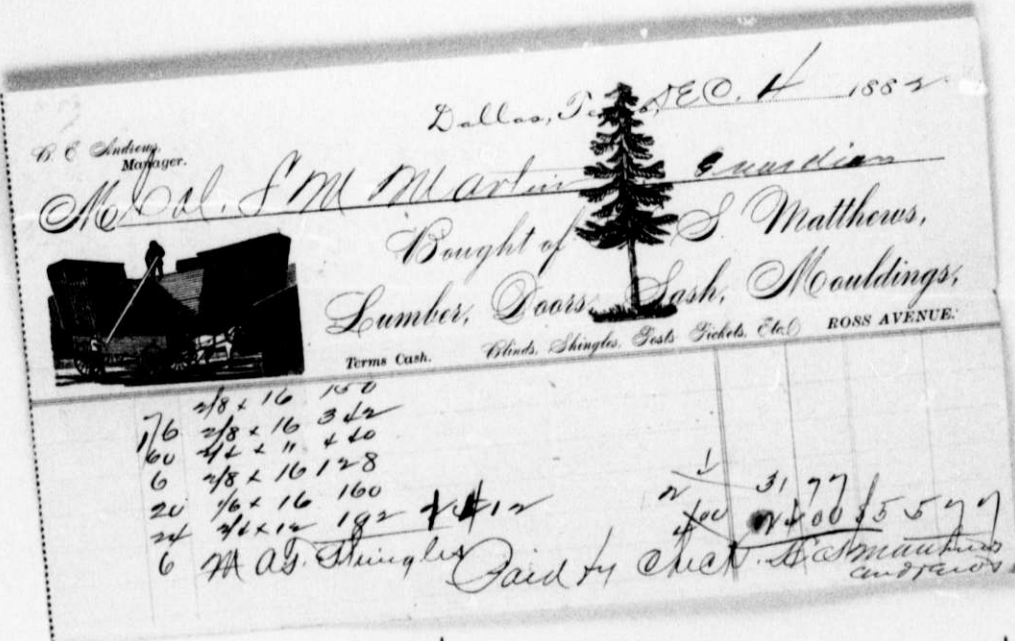 Dallas, Texas, DEC. 4 1882
B. E. Andrews,
Manager.
M Col. S M Martin Guardian
Bought of S Matthews,
Lumber, Doors, Sash, Mouldings,
Terms Cash. Blinds, Shingles, Posts Pickets, Etc. ROSS AVENUE.
2/8 x 16 150
16 2/8 x 16 342
60 2/4 x " 440
6 2/8 x 16 128
20 1/6 x 16 160
24 2/4 x 12 192 31 77
6 M Shingles 4 00 24 00 $55 77
Paid by Check. Matthews
Andrews